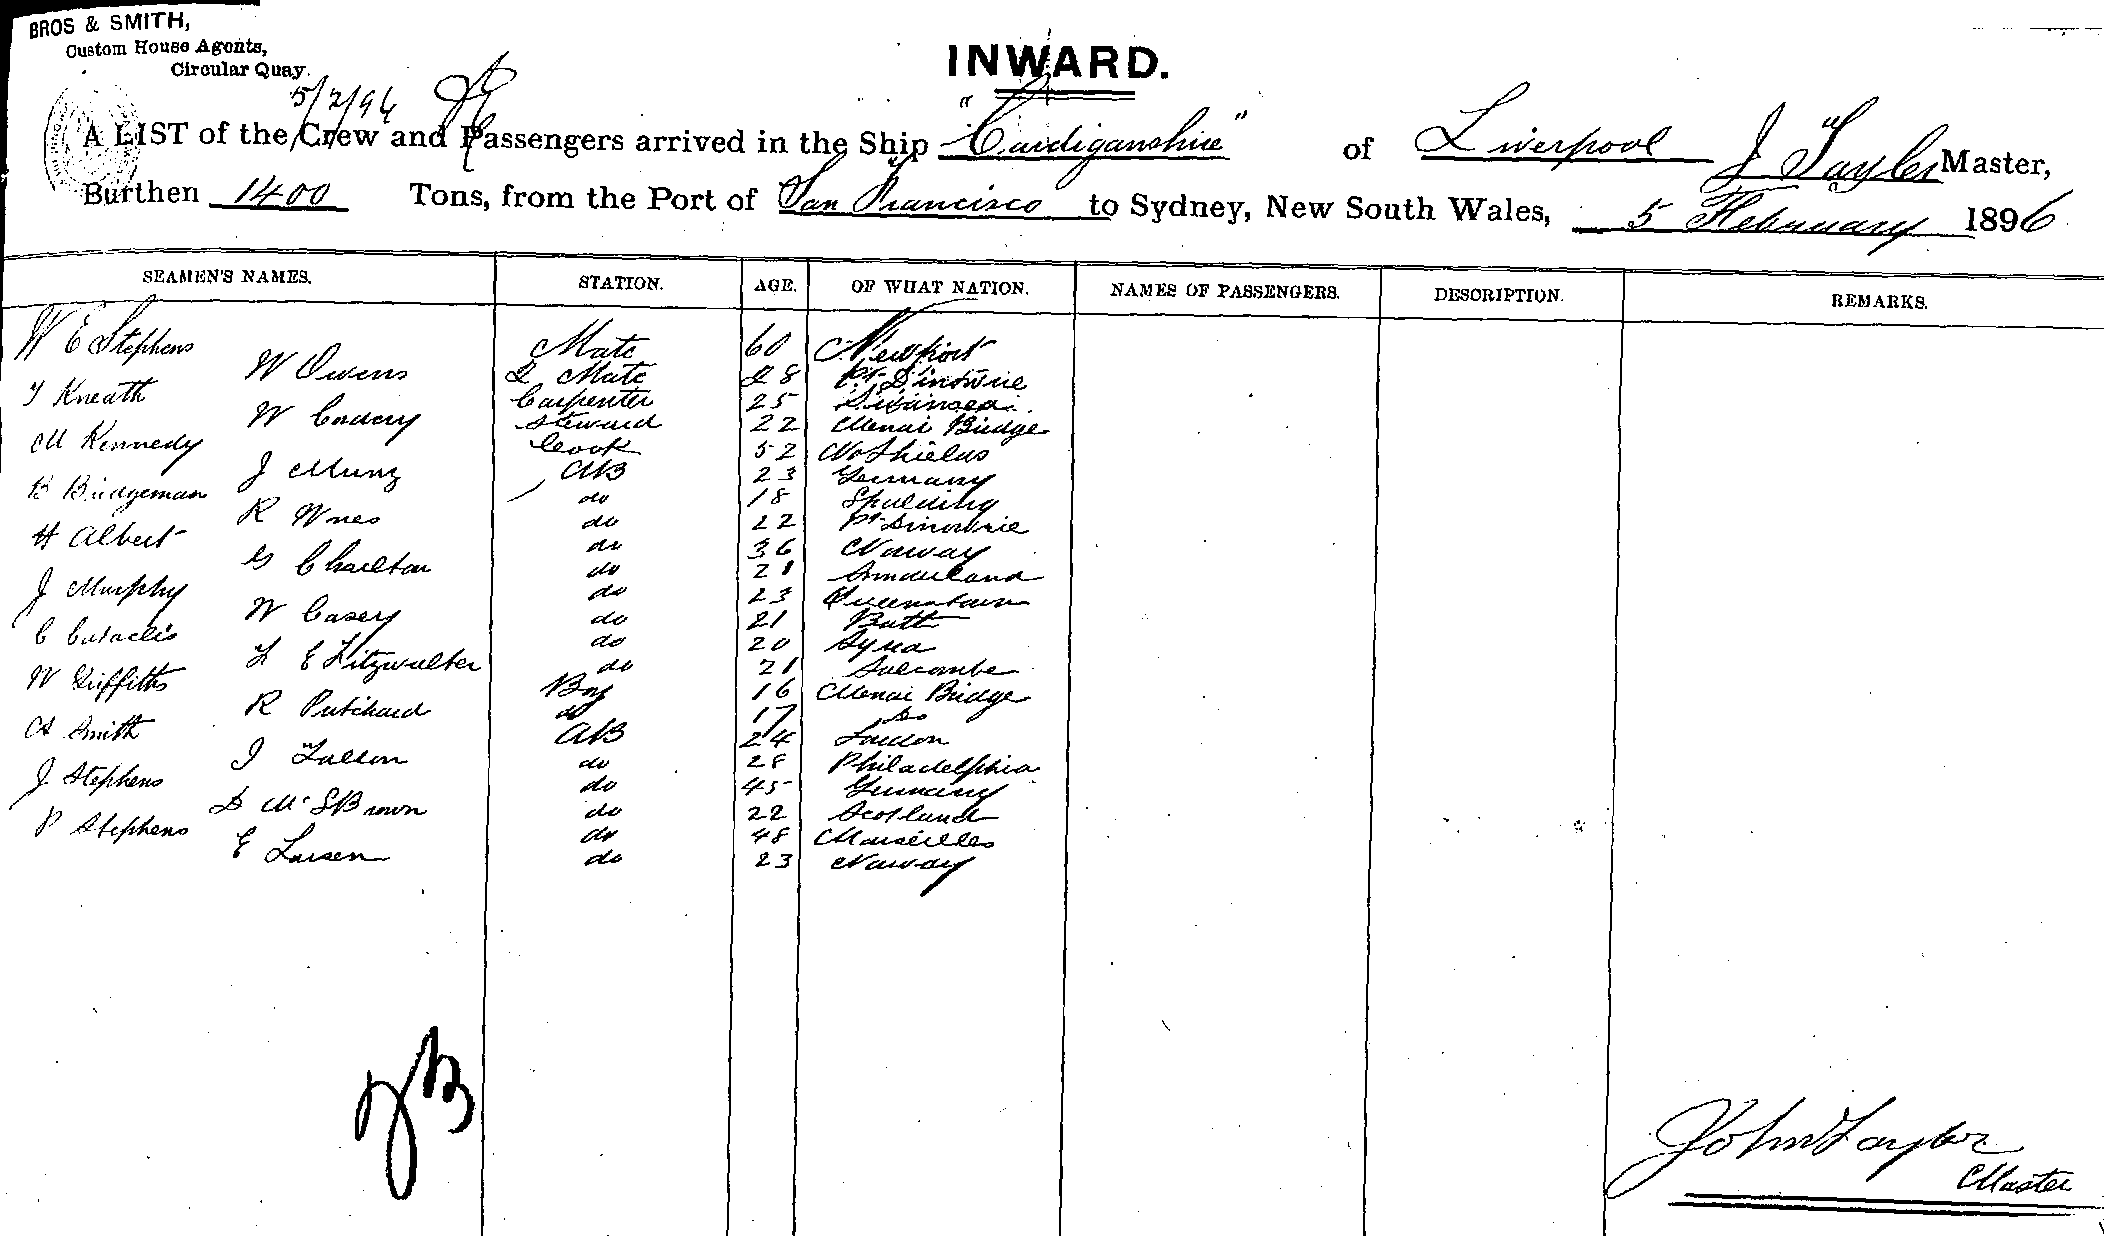 BROS & SMITH,
Custom House Agents,
Circular Quay.
5/2/96
INWARD.
A LIST of the Crew and Passengers arrived in the Ship "Cardiganshire" of Liverpool J Taylor Master,
Burthen 1400 Tons, from the Port of San Francisco to Sydney, New South Wales, 5 February 1896
SEAMEN'S NAMES. STATION. AGE. OF WHAT NATION. NAMES OF PASSENGERS. DESCRIPTION. REMARKS.
W E Stephens Mate 60 Newport
W Owens 2 Mate 28 Pt Dinorwic
T Kneath Carpenter 25 Swansea
W Cadery Steward 22 Menai Bridge
M Kennedy Cook 52 No Shields
J Munz AB 23 Germany
B Bridgeman do 18 Spalding
R Wnes do 22 Pt Dinorwic
H Albert do 36 Norway
G Charlton do 21 Sunderland
J Murphy do 23 Queenstown
W Casey do 21 Butt
C do 20 Syra
L E Fitzwalter do 21 Salcombe
W Griffiths Boy 16 Menai Bridge
R Pritchard do 17 do
A Smith AB 24 London
J Fallon do 28 Philadelphia
J Stephens do 45 Germany
D McGBrown do 22 Scotland
P Stephens do 48 Marseilles
E Larsen do 23 Norway
JB
John Taylor
Master